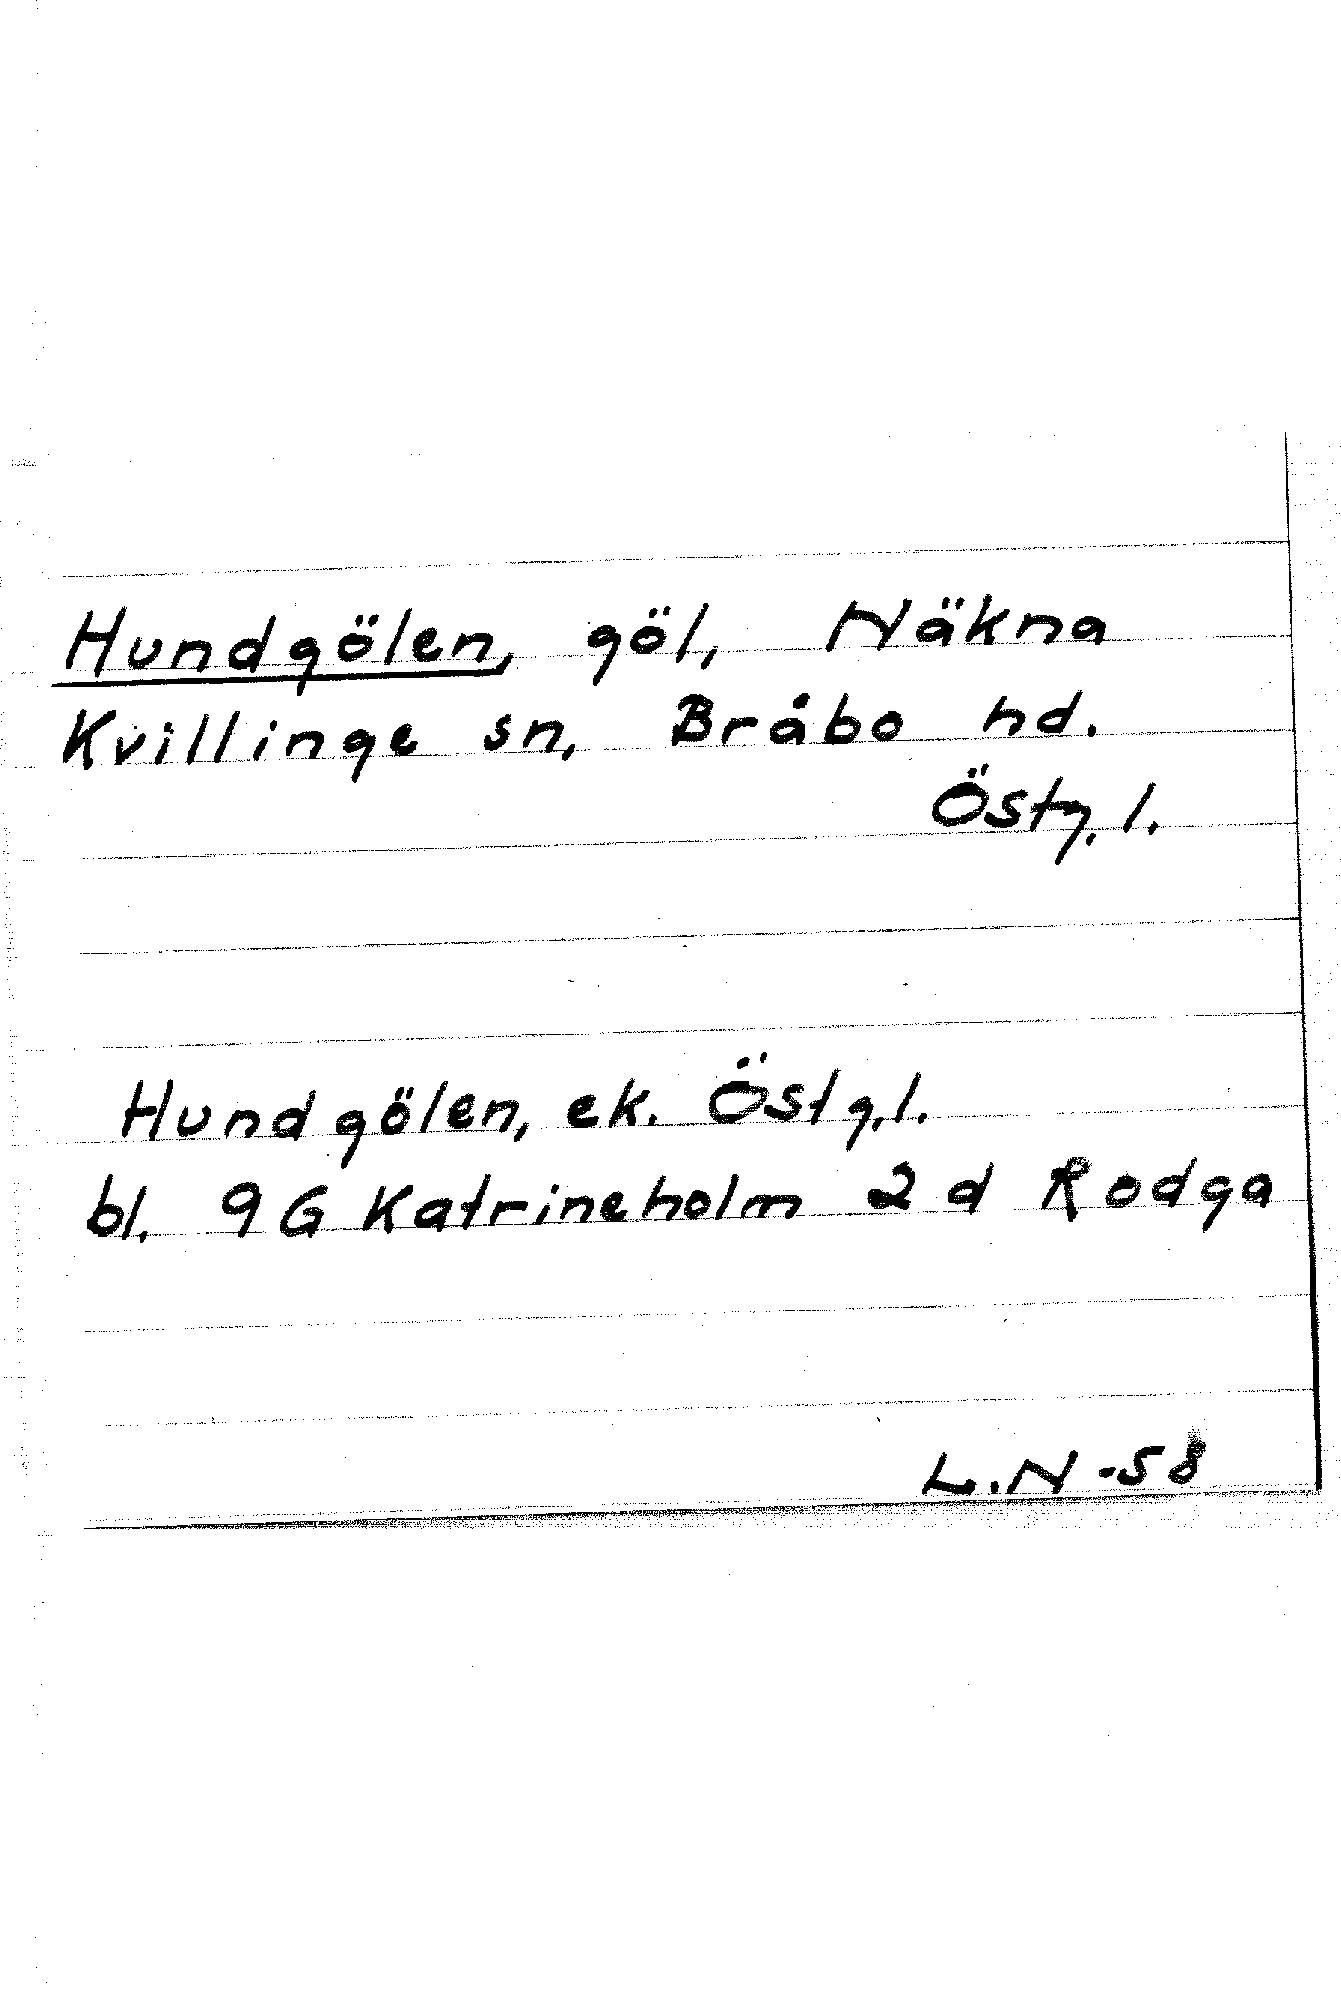 Hundgölen, göl, Näkna
Kvillinge sn, Bråbo hd.
Östg. l.
Hundgölen, ek. Östg. l.
bl. 9 G Katrineholm 2 d Rodga
L.N -58